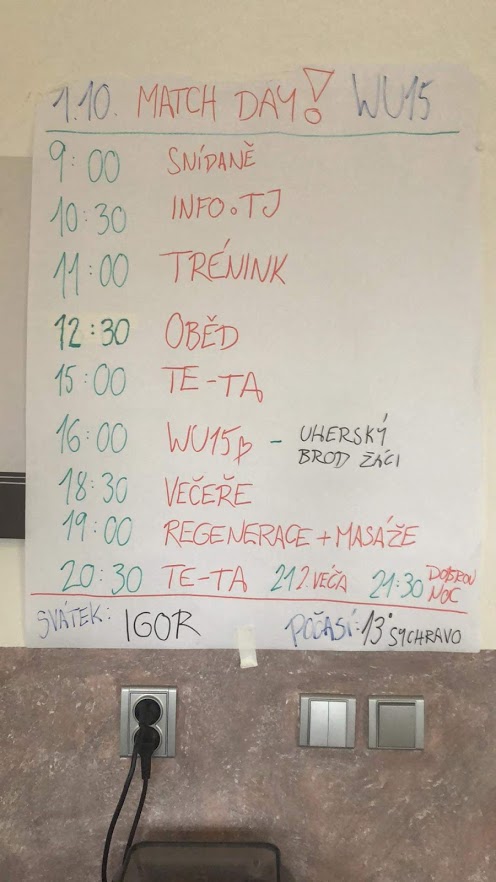 1.10. MATCH DAY! WU15
9:00 SNÍDANĚ
10:30 INFO.TJ
11:00 TRÉNINK
12:30 OBĚD
15:00 TE-TA
16:00 WU15 - UHERSKÝ
BROD ŽÁCI
18:30 VEČEŘE
19:00 REGENERACE+MASÁŽE
20:30 TE-TA 21 2.VEČA 21:30 DOBROU
NOC
SVÁTEK: IGOR POČASÍ: 13° SYCHRAVO